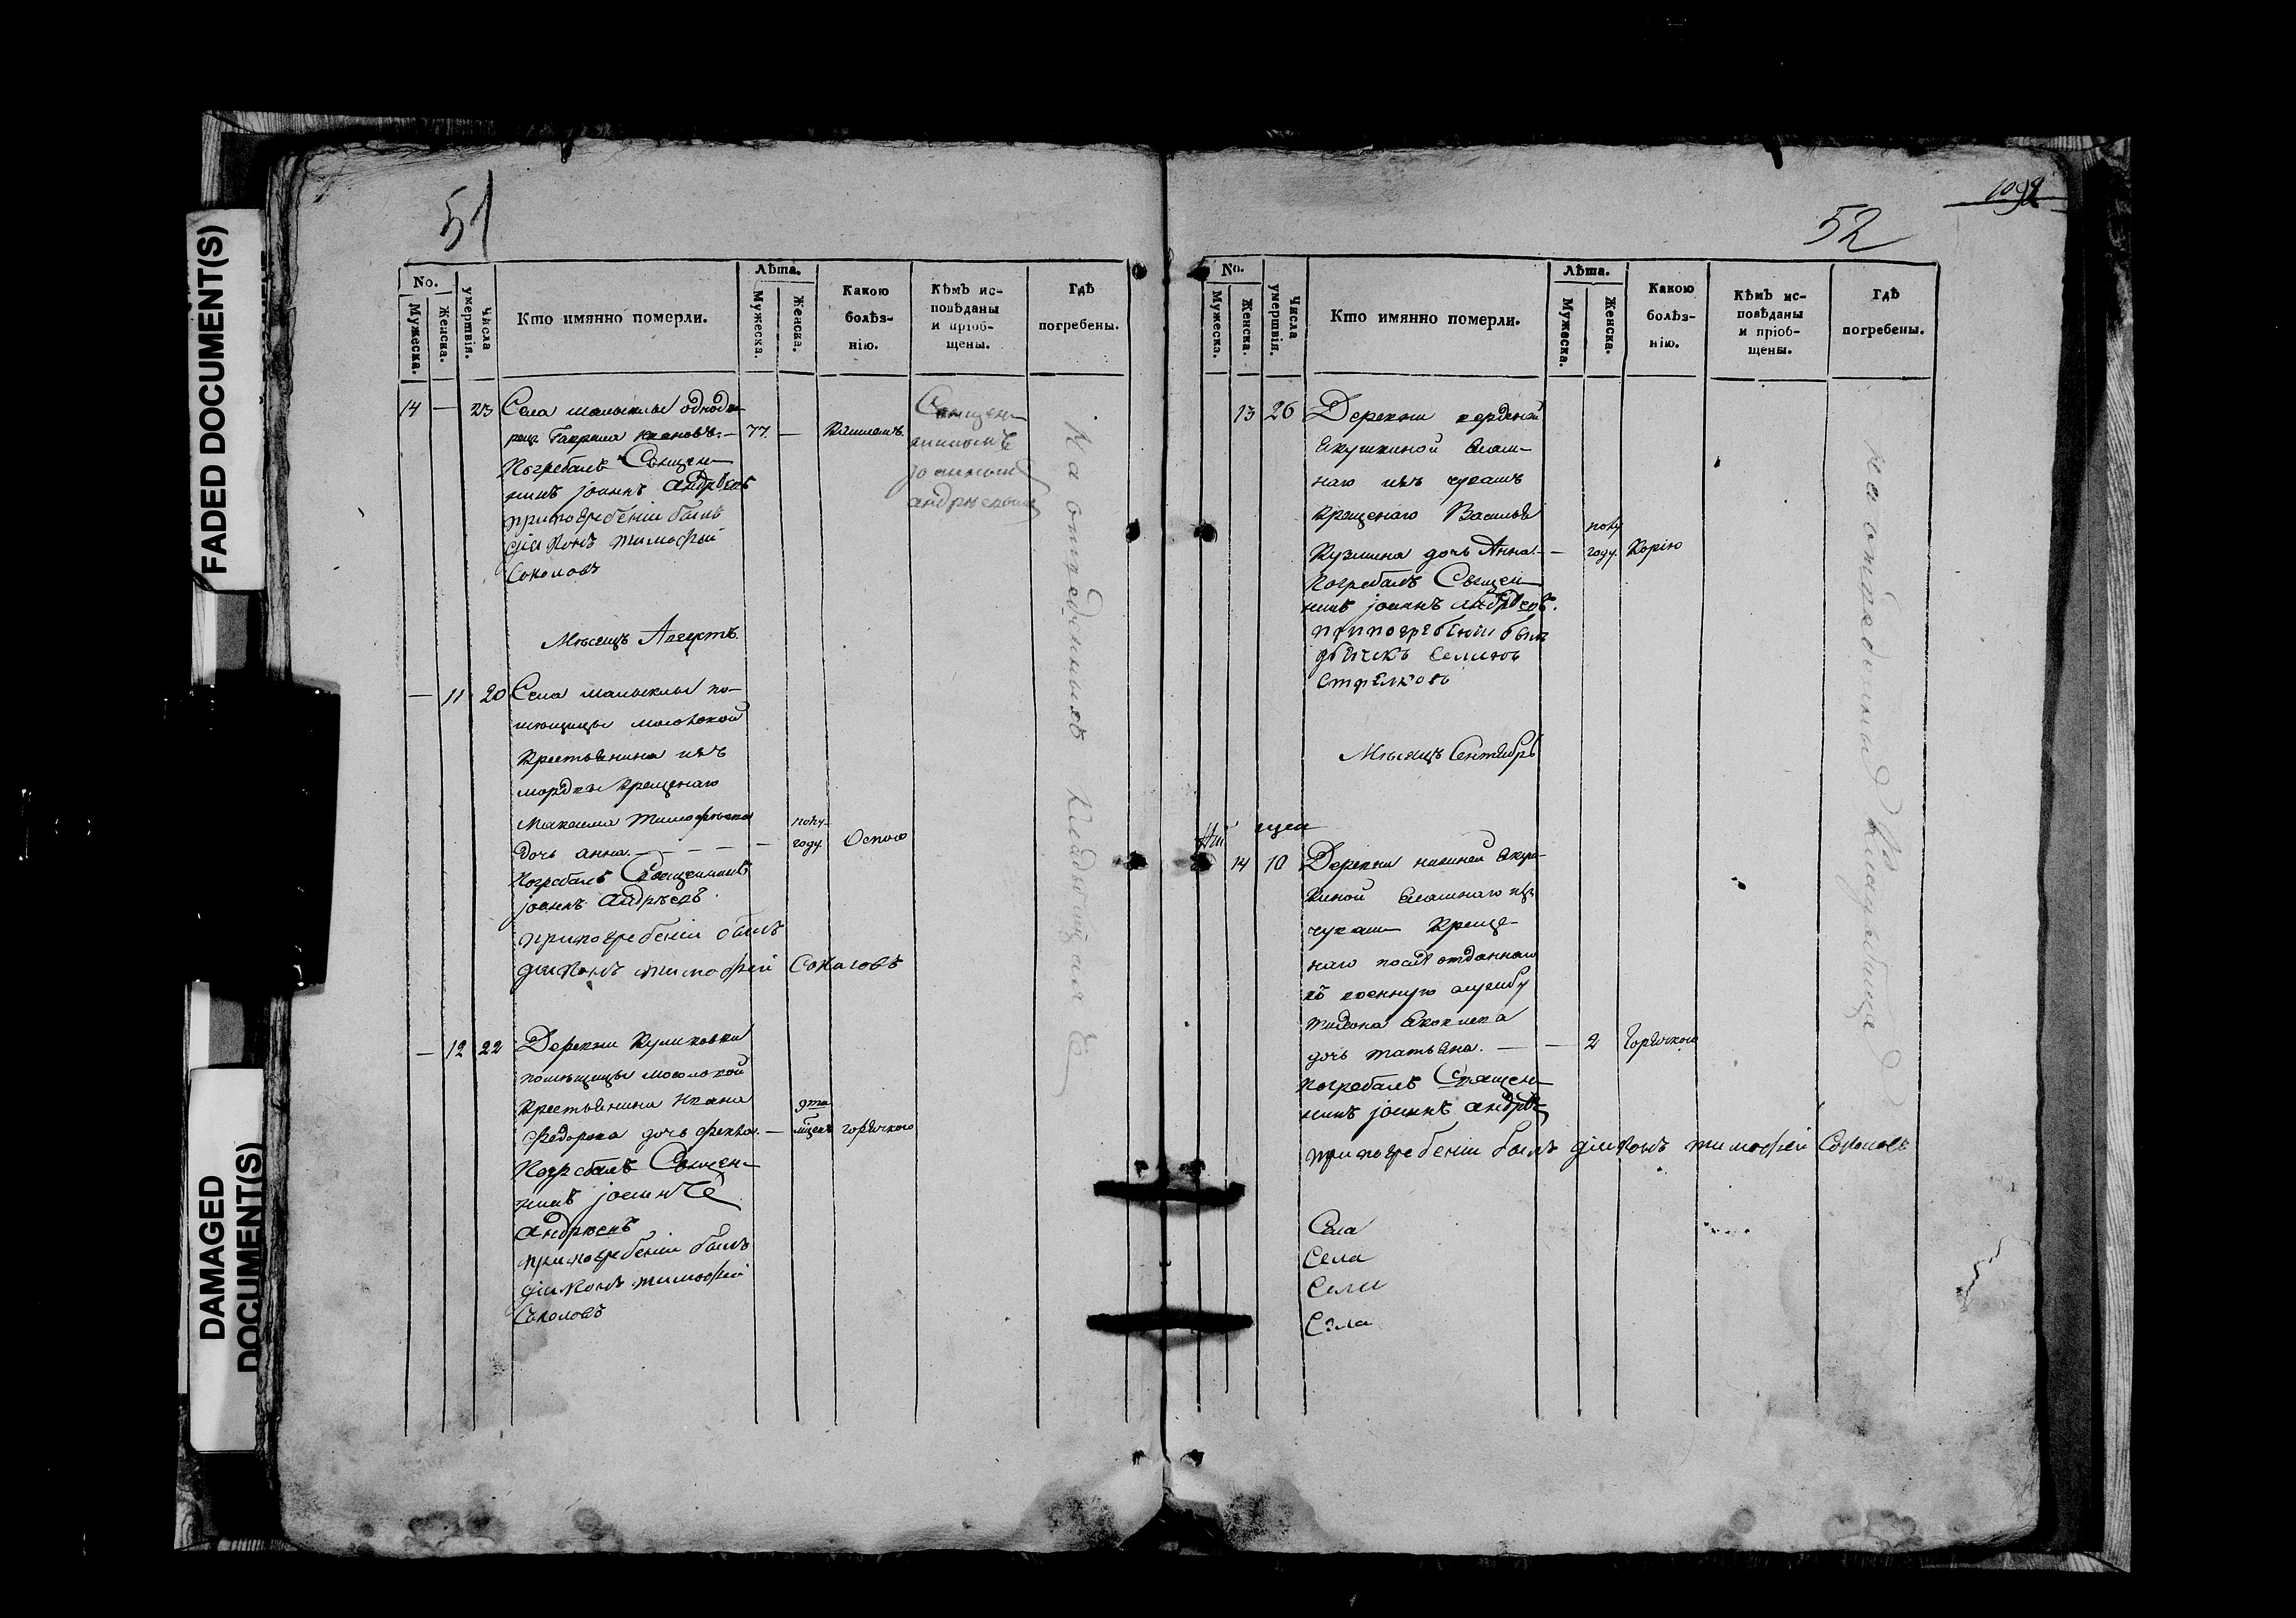 FADED DOCUMENT(S)
DAMAGED
DOCUMENT(S)
51
No.
Мужеска.
Женска.
Числа
умертвія.
Кто имянно померли.
Лѣта.
Мужеска.
Женска.
Какою
болѣз-
нію.
Кѣмъ ис-
повѣданы
и пріоб-
щены.
Гдѣ
погребены.
14 — 23 Села
Гаврила 77. — Кашлемъ.
Погребалъ Священ-
никъ іоаннъ андрѣевъ
при погребеніи былъ
діаконъ тимофей
Соколовъ
Священ-
никомъ
іоанномъ
андреевымъ
На отведенномъ кладбище
Мѣсяцъ Августъ.
— 11 20 Села по-
мѣщицы
Крестьянина изъ
мордвы Крещенаго
Максима Тимофеева полу-
дочь анна. — — — — — году. Оспою
Погребалъ Священникъ
іоаннъ андрѣевъ.
при погребеніи былъ
діаконъ тимофей Соколовъ
— 12 22 Деревни Куликовки
помѣщицы
Крестьянина Ивана
Федорова дочь — горячкою
Погребалъ Священ-
никъ іоаннъ
андрѣевъ
при погребеніи былъ
діаконъ тимофей
Соколовъ
1092
52
No.
Мужеска.
Женска.
Числа
умертвія.
Кто имянно померли.
Лѣта.
Мужеска.
Женска.
Какою
болѣз-
нію.
Кѣмъ ис-
повѣданы
и пріоб-
щены.
Гдѣ
погребены.
13 26 Деревни верхней
Якушкиной Ясаш-
наго изъ чуваш
Крещенаго Василья полу
Кузмина дочь Анна. — году. Корію
Погребалъ Священ-
никъ іоаннъ андрѣевъ.
при погребеніи былъ
дьячекъ Семионъ
Стрелковъ
на отведенномъ Кладбище
Мѣсяцъ Сентябрь
14 10 Деревни нижней Якуш-
киной Ясашнаго изъ
чуваш Креще-
наго после отданнаго
въ военную службу
Яковлева
дочь татьяна. — — 2 Горячкою
Погребалъ Священ-
никъ іоаннъ андрѣевъ
при погребеніи былъ діаконъ тимофей Соколовъ
Села
Села
Сели
Села